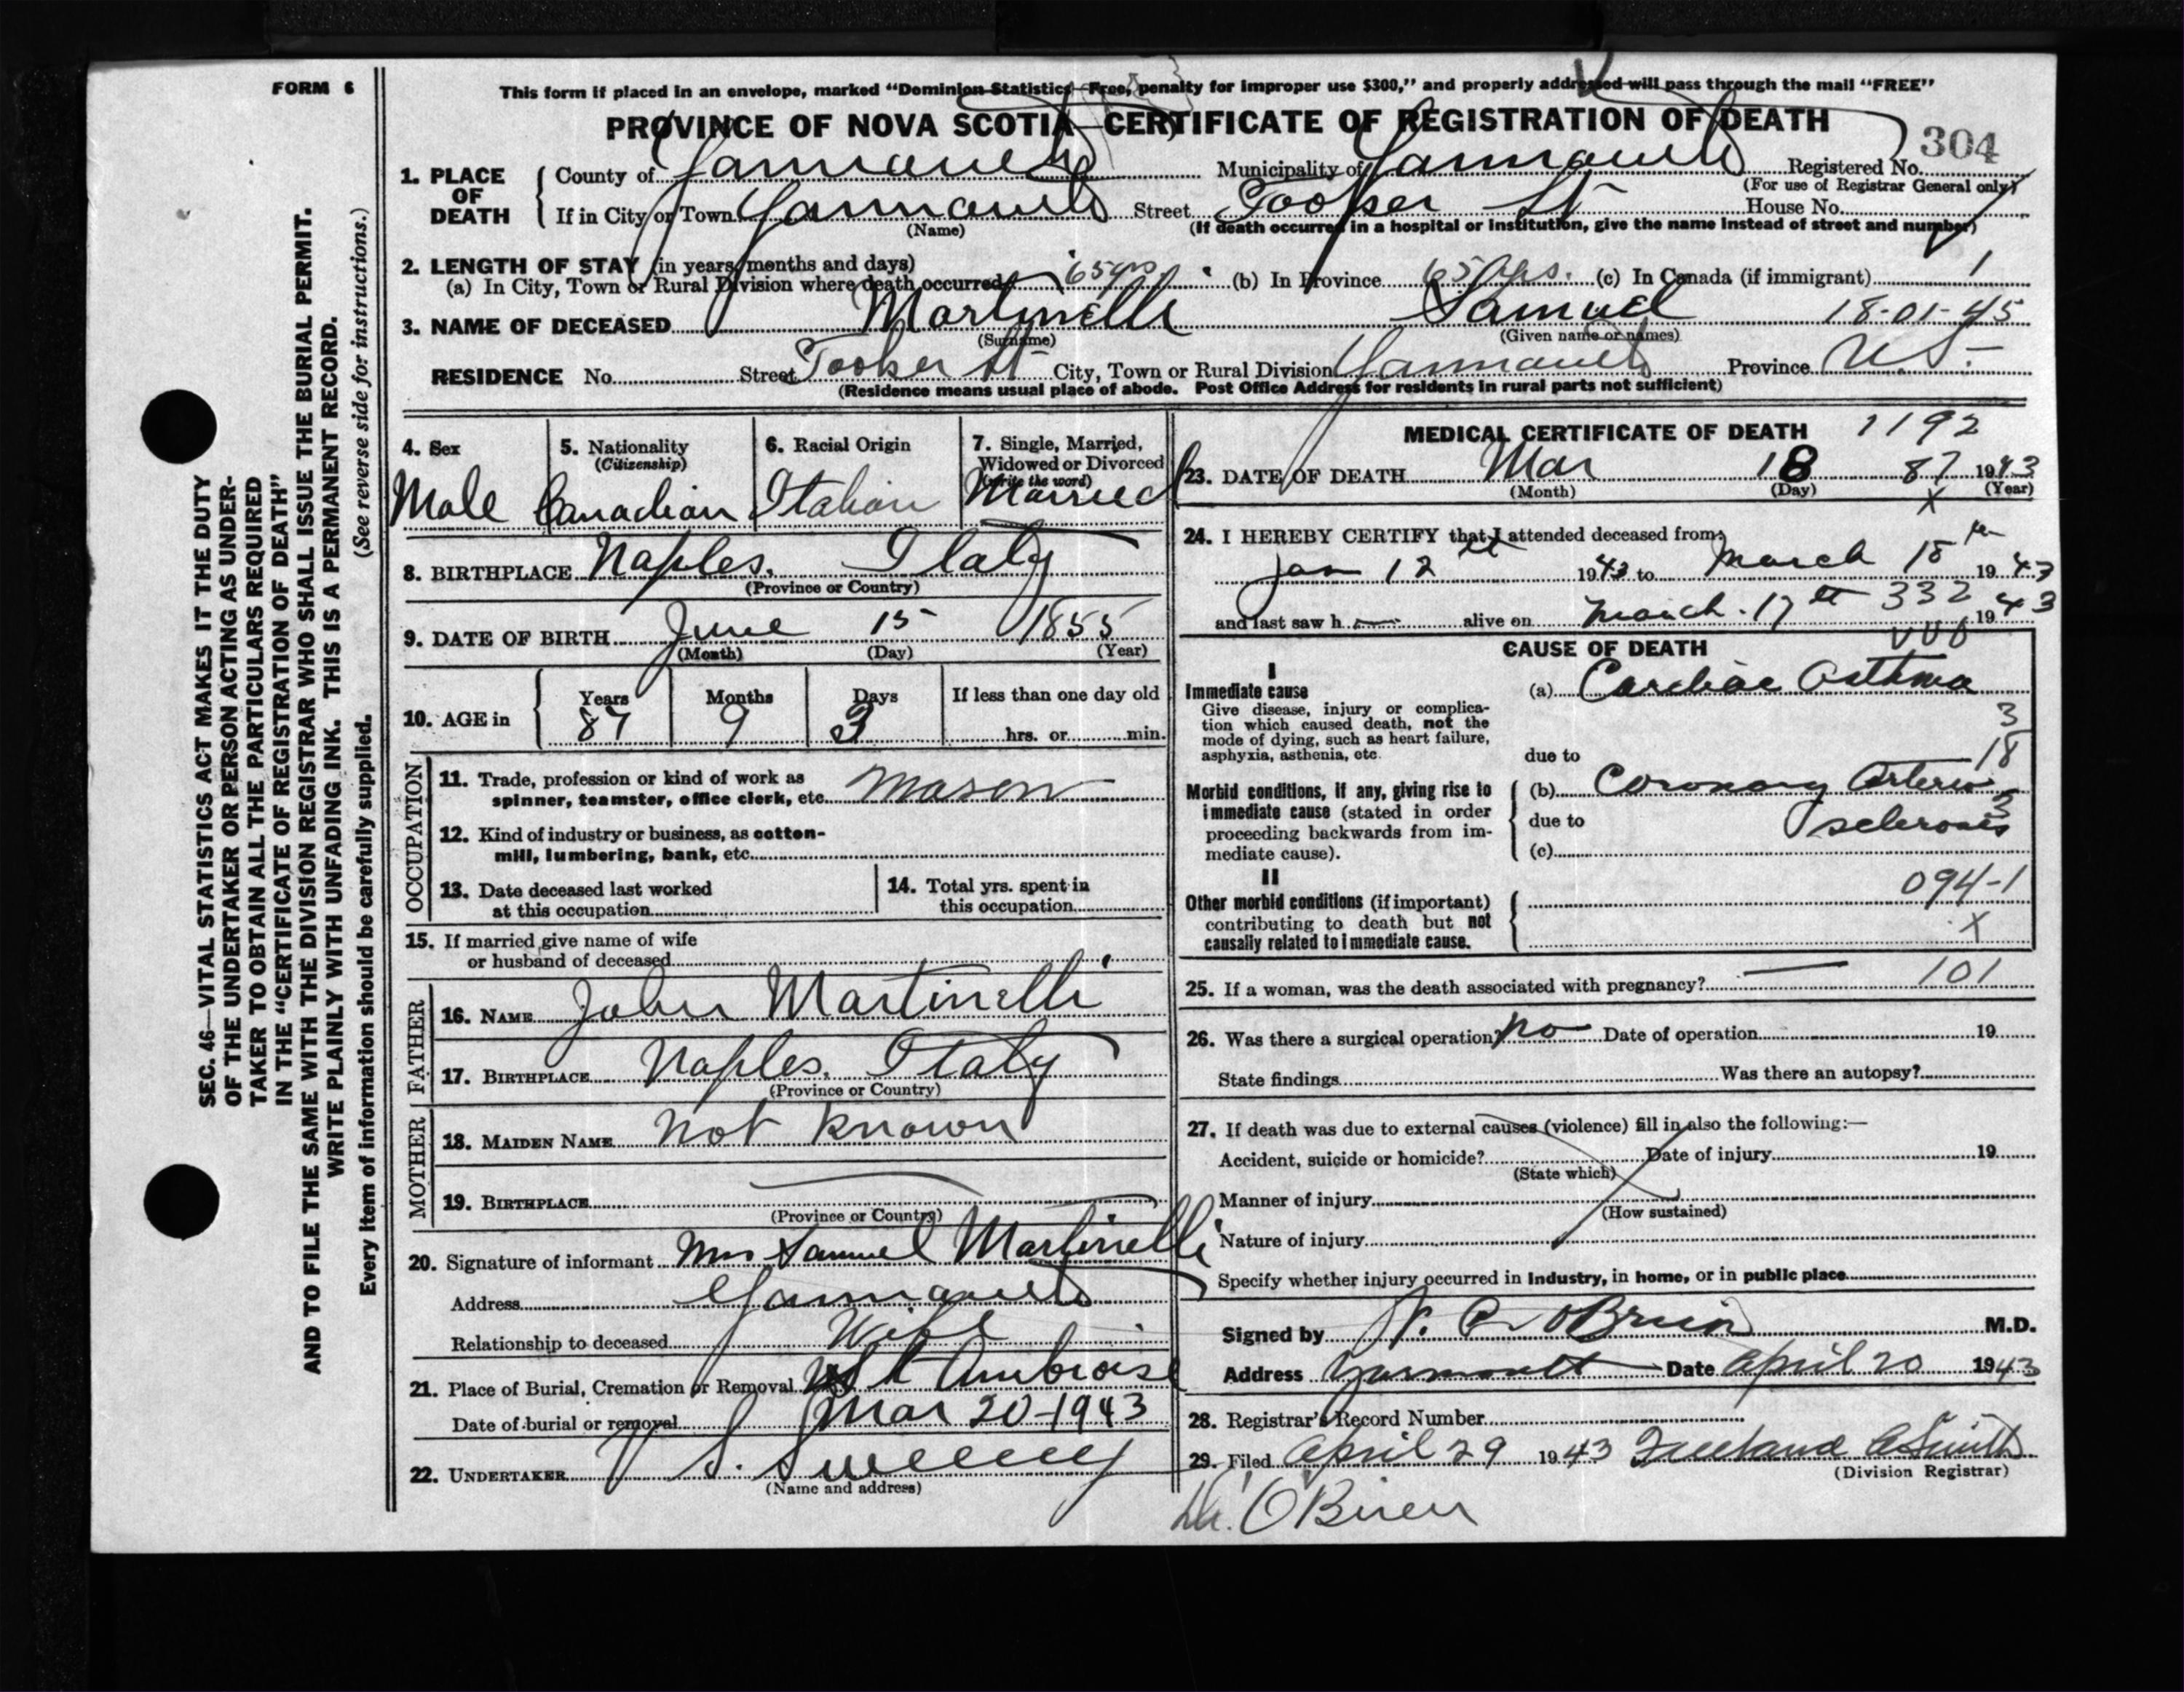 FORM 6
This form if placed in an envelope, marked "Dominion Statistics—Free, penalty for improper use $300," and properly addressed will pass through the mail "FREE"
PROVINCE OF NOVA SCOTIA—CERTIFICATE OF REGISTRATION OF DEATH
304
1. PLACE OF DEATH
County of Yarmouth Municipality of Yarmouth Registered No.
(For use of Registrar General only)
If in City or Town Yarmouth Street Tooker St House No.
(Name) (If death occurred in a hospital or institution, give the name instead of street and number)
2. LENGTH OF STAY (in years, months and days)
(a) In City, Town or Rural Division where death occurred 65 yrs (b) In Province 65 yrs. (c) In Canada (if immigrant)
3. NAME OF DECEASED Martinelli Samuel 18-01-45
(Surname) (Given name or names)
RESIDENCE No. Street Tooker St City, Town or Rural Division Yarmouth Province N.S.
(Residence means usual place of abode. Post Office Address for residents in rural parts not sufficient)
4. Sex
Male
5. Nationality
(Citizenship)
Canadian
6. Racial Origin
Italian
7. Single, Married,
Widowed or Divorced
(write the word)
Married
8. BIRTHPLACE Naples, Italy
(Province or Country)
9. DATE OF BIRTH June 15 1855
(Month) (Day) (Year)
10. AGE in
Years Months Days If less than one day old
87 9 3 hrs. or min.
OCCUPATION
11. Trade, profession or kind of work as
spinner, teamster, office clerk, etc. Mason
12. Kind of industry or business, as cotton-
mill, lumbering, bank, etc.
13. Date deceased last worked
at this occupation
14. Total yrs. spent in
this occupation
15. If married give name of wife
or husband of deceased
FATHER
16. NAME John Martinelli
17. BIRTHPLACE Naples, Italy
(Province or Country)
MOTHER
18. MAIDEN NAME not known
19. BIRTHPLACE
(Province or Country)
20. Signature of informant Mrs Samuel Martinelli
Address Yarmouth
Relationship to deceased Wife
21. Place of Burial, Cremation or Removal St Ambroise
Date of burial or removal Mar 20-1943
22. UNDERTAKER V. S. Sweeny
(Name and address)
MEDICAL CERTIFICATE OF DEATH 1192
23. DATE OF DEATH Mar 18 87 1943
(Month) (Day) (Year)
X
24. I HEREBY CERTIFY that I attended deceased from:
Jan 12th 1943 to March 18th 1943
and last saw h alive on March 17th 332 1943
CAUSE OF DEATH
I
Immediate cause
Give disease, injury or complica-
tion which caused death, not the
mode of dying, such as heart failure,
asphyxia, asthenia, etc.
(a) Cardiac Asthma
3
18
due to
Morbid conditions, if any, giving rise to
immediate cause (stated in order
proceeding backwards from im-
mediate cause).
(b) Coronary Arterio
due to sclerosis
3
(c)
II
Other morbid conditions (if important)
contributing to death but not
causally related to immediate cause.
094-1
X
25. If a woman, was the death associated with pregnancy? — 101
26. Was there a surgical operation? No Date of operation 19
State findings Was there an autopsy?
27. If death was due to external causes (violence) fill in also the following:—
Accident, suicide or homicide? Date of injury 19
(State which)
Manner of injury
(How sustained)
Nature of injury
Specify whether injury occurred in industry, in home, or in public place
Signed by O'Brien M.D.
Address Yarmouth Date April 20 1943
28. Registrar's Record Number
29. Filed April 29 1943 Freeland A Smith
(Division Registrar)
Dr. O'Brien
SEC. 46—VITAL STATISTICS ACT MAKES IT THE DUTY
OF THE UNDERTAKER OR PERSON ACTING AS UNDER-
TAKER TO OBTAIN ALL THE PARTICULARS REQUIRED
IN THE "CERTIFICATE OF REGISTRATION OF DEATH"
AND TO FILE THE SAME WITH THE DIVISION REGISTRAR WHO SHALL ISSUE THE BURIAL PERMIT.
WRITE PLAINLY WITH UNFADING INK. THIS IS A PERMANENT RECORD.
(See reverse side for instructions.)
Every item of information should be carefully supplied.